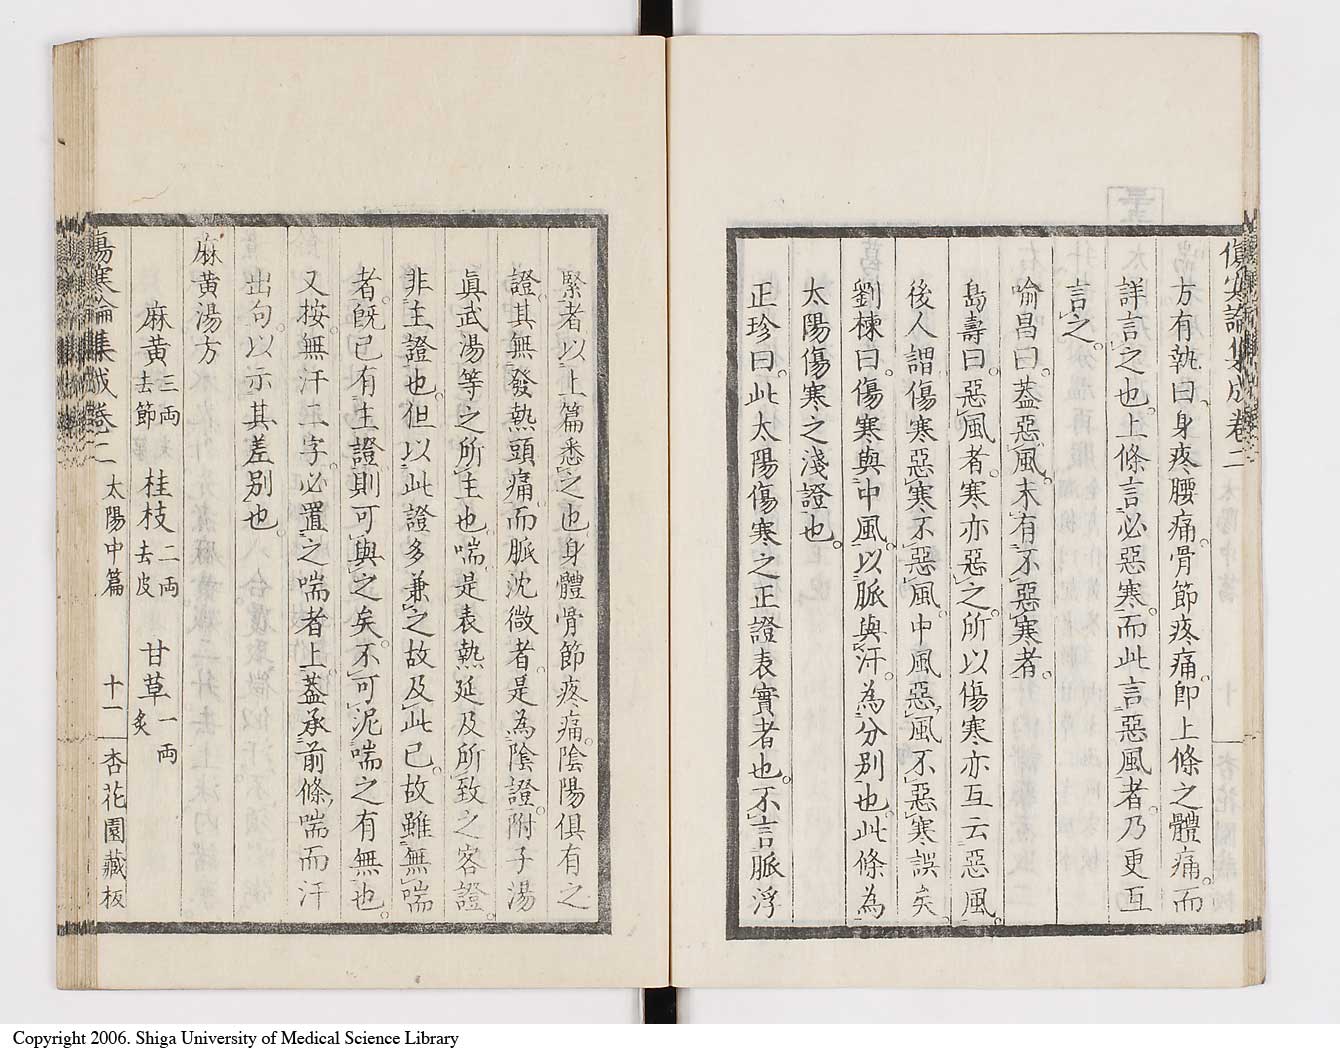 傷寒論集成卷二
方有執曰身疼腰痛骨節疼痛。卽上條之體痛。而
詳言之也。上條言必惡寒。而此言惡風者。乃更互
言之。
喻昌曰。葢惡風。未有不惡寒者。
島壽曰。惡風者。寒亦惡之。所以傷寒亦互云惡風。
後人謂傷寒惡寒不惡風。中風惡風不惡寒。誤矣。
劉棟曰。傷寒與中風。以脈與汗。為分別也。此條為
太陽傷寒之淺證也。
正珍曰。此太陽傷寒之正證表實者也。不言脈浮
緊者。以上篇悉之也。身體骨節疼痛。陰陽俱有之
證。其無發熱頭痛。而脈沈微者。是為陰證。附子湯
眞武湯等之所主也。喘是表熱延及所致之客證。
非主證也。但以此證多兼之故及此已。故雖無喘
者。旣已有主證。則可與之矣。不可泥喘之有無也。
又按。無汗二字。必置之喘者上。葢承前條。喘而汗
出句。以示其差別也。
麻黃湯方
麻黃三兩去節 桂枝二兩去皮 甘草一兩炙
傷寒論集成卷二 太陽中篇 十一 杏花園藏板
Copyright 2006. Shiga University of Medical Science Library